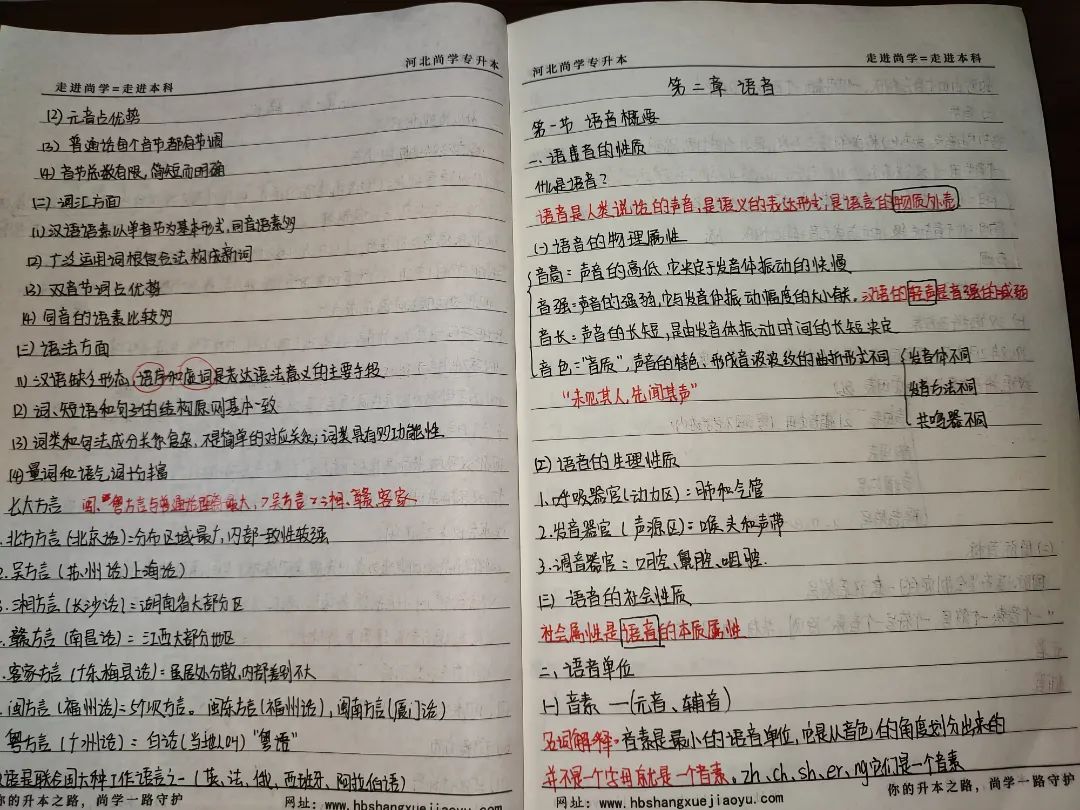 走进尚学=走进本科
河北尚学专升本
(2) 元音占优势
(3) 普通话每个音节都有节调
(4) 音节总数有限,简短而明确
(二) 词汇方面
(1) 汉语语素以单音节为基本形式,同音语素多
(2) 广泛运用词根复合法构成新词
(3) 双音节词占优势
(4) 同音的语素比较多
(三) 语法方面
(1) 汉语缺乏形态,语序和虚词是表达语法意义的主要手段
(2) 词、短语和句子的结构原则基本一致
(3) 词类和句法成分关系复杂,不是简单的对应关系;词类具有多功能性
(4) 量词和语气词十分丰富
七大方言 闽、粤方言与普通话距离最大,>吴方言>湘、赣、客家
1.北方方言(北京话)=分布区域最广,内部一致性较强
2.吴方言(苏州话)上海话)
3.湘方言(长沙话)=湖南省大部分区
.赣方言(南昌话)=江西大部分地区
.客家方言(广东梅县话)=虽居处分散,内部差别不大
.闽方言(福州话)=5个次方言。闽东方言(福州话),闽南方言(厦门话)
粤方言(广州话)=白话(当地人叫)"粤语"
汉语是联合国六种工作语言之一(英、法、俄、西班牙、阿拉伯语)
网址:www.hbshangxuejiaoyu.com
河北尚学专升本
走进尚学=走进本科
第二章 语音
第一节 语音概要
一、语音的性质
什么是语音?
语音是人类说话的声音,是语义的表达形式,是语言的物质外壳
(一) 语音的物理属性
音高=声音的高低,它决定于发音体振动的快慢
音强=声音的强弱,它与发音体振动幅度的大小有关,汉语的轻声是音强的减弱
音长=声音的长短,是由发音体振动时间的长短决定
音色="音质",声音的特色、形成音波波纹的曲折形式不同
发音体不同
发音方法不同
共鸣器不同
"未见其人,先闻其声"
(二) 语音的生理性质
1.呼吸器官(动力区)=肺和气管
2.发音器官(声源区)=喉头和声带
3.调音器官=口腔、鼻腔、咽腔.
(三) 语音的社会性质
社会属性是语音的本质属性
二、语音单位
(一) 音素 —(元音、辅音)
名词解释.音素是最小的语音单位,它是从音色的角度划分出来的
并不是一个字母就是一个音素,zh、ch、sh、er、ng它们是一个音素
你的升本之路,尚学一路守护
网址:www.hbshangxuejiaoyu.com
你的升本之路,尚学一路守护